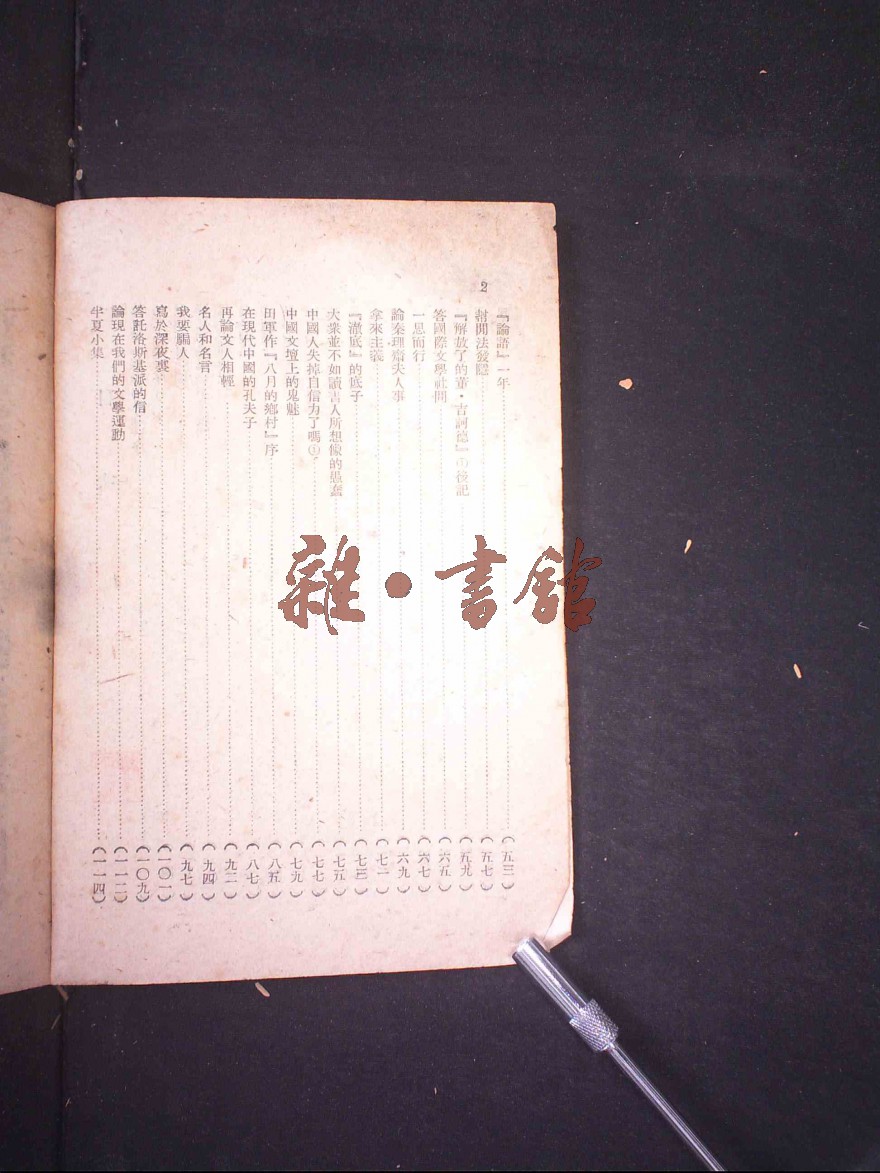 2
『論語』一年……（五三）
封閉法發隱……（五七）
『解放了的董·吉訶德』後記……（五九）
答國際文學社問……（六五）
一思而行……（六七）
論秦理齋夫人事……（六九）
拿來主義……（七一）
『澈底』的底子……（七三）
大衆並不如讀書人所想像的愚蠢……（七五）
中國人失掉自信力了嗎……（七七）
中國文壇上的鬼魅……（七九）
田軍作『八月的鄉村』序……（八五）
在現代中國的孔夫子……（八七）
再論文人相輕……（九二）
名人和名言……（九四）
我要騙人……（九七）
寫於深夜裏……（一〇一）
答託洛斯基派的信……（一〇九）
論現在我們的文學運動……（一一二）
半夏小集……（一一四）
雜·書館